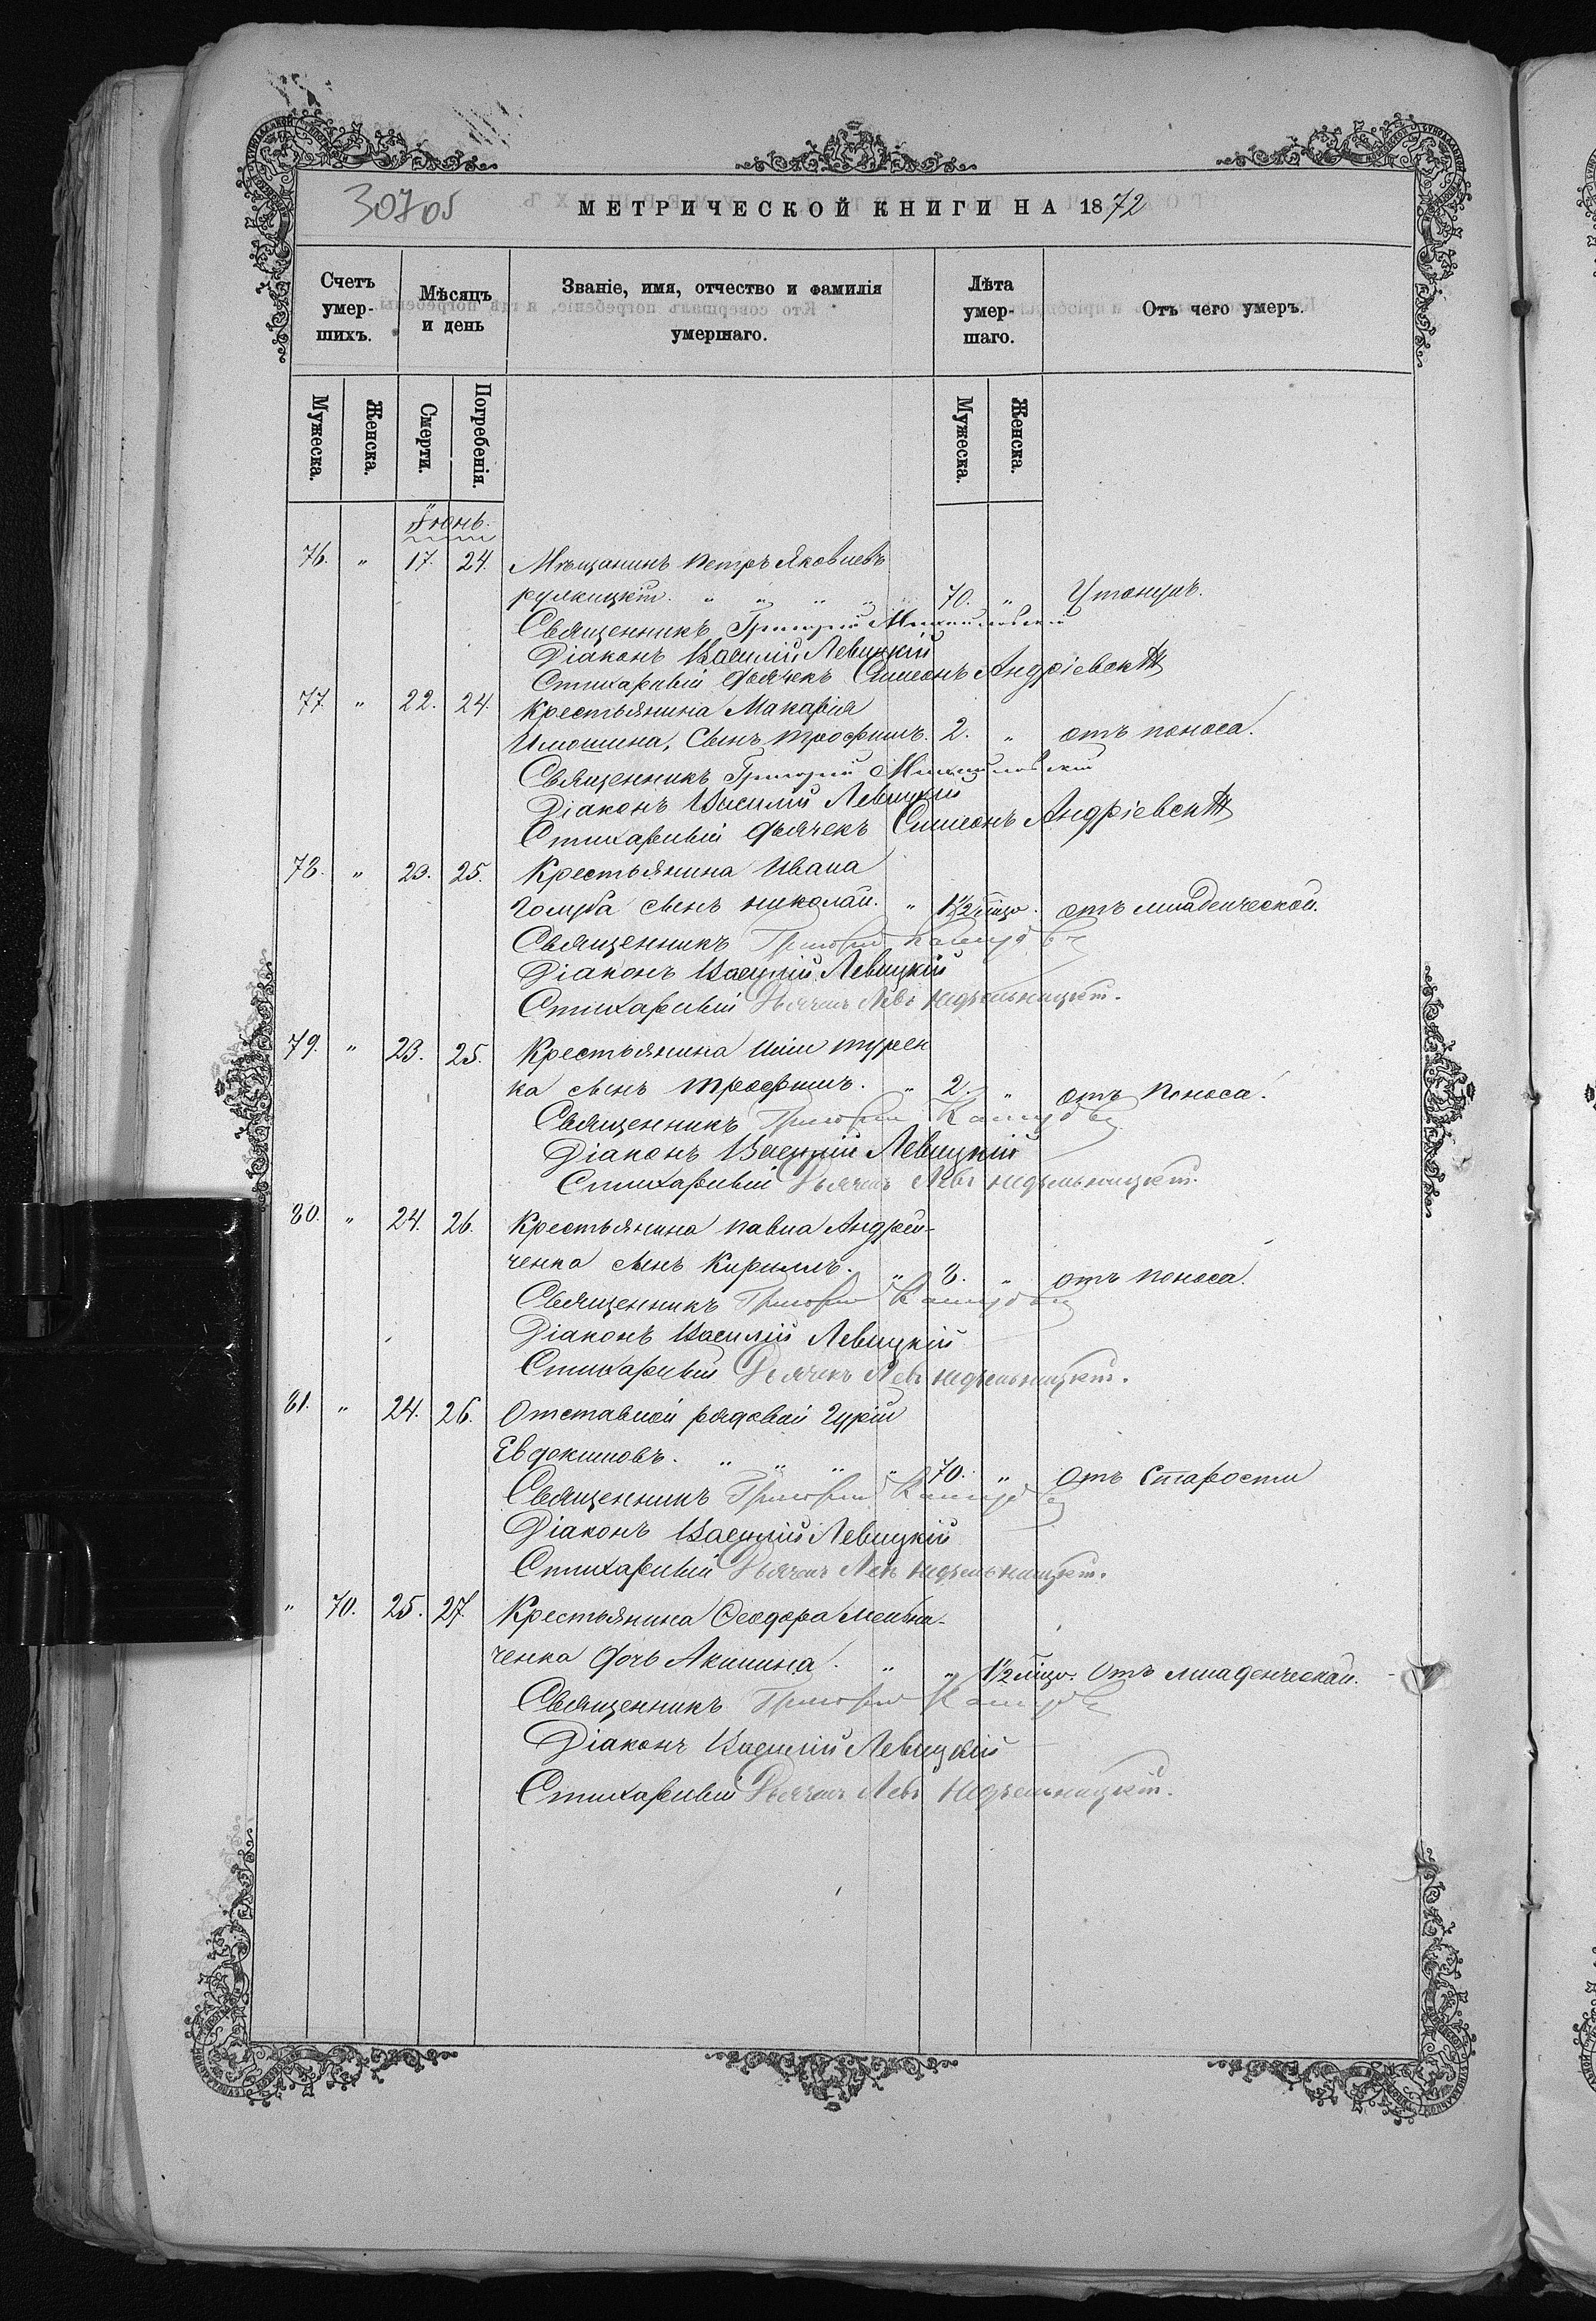 30705
МЕТРИЧЕСКОЙ КНИГИ НА 1872
Счетъ умер-шихъ. Мѣсяцъ и день Званіе, имя, отчество и фамилія умершаго. Лѣта умер-шаго. Отъ чего умеръ.
Мужеска. Женска. Смерти. Погребенія. Мужеска. Женска.
Іюнь.
76. " 17. 24. Мѣщанинъ Петръ Яковлевъ
" " " " 70. " Утонулъ.
Священникъ Григорій
Діаконъ Василій Левицкій
Стихарный Дьячекъ Симеонъ Андріевскій
77. " 22. 24. Крестьянина Макарія
Сынъ Трофимъ. 2. " отъ поноса.
Священникъ Григорій
Діаконъ Василій Левицкій
Стихарный Дьячекъ Симеонъ Андріевскій
78. " 23. 25. Крестьянина Ивана
Голуба сынъ Николай. " 1 1/2 мѣсц. отъ младенческой.
Священникъ Григорій
Діаконъ Василій Левицкій
Стихарный Дьячекъ Левъ Недѣльницкій.
79. " 23. 25. Крестьянина
ка сынъ Трофимъ. " 2. " отъ поноса.
Священникъ Григорій
Діаконъ Василій Левицкій
Стихарный Дьячекъ Левъ Недѣльницкій.
80. " 24. 26. Крестьянина Павла Андрей-
ченка сынъ Кириллъ. " " отъ поноса.
Священникъ Григорій
Діаконъ Василій Левицкій
Стихарный Дьячекъ Левъ Недѣльницкій.
81. " 24. 26. Отставной рядовой Гурій
Евдокимовъ. " " " " 70. " Отъ Старости
Священникъ Григорій
Діаконъ Василій Левицкій
Стихарный Дьячекъ Левъ Недѣльницкій.
" 70. 25. 27. Крестьянина Ѳеодора Мельни-
ченка дочь Акилина. " " 1 1/2 мѣсц. Отъ младенческой.
Священникъ Григорій
Діаконъ Василій Левицкій
Стихарный Дьячекъ Левъ Недѣльницкій.